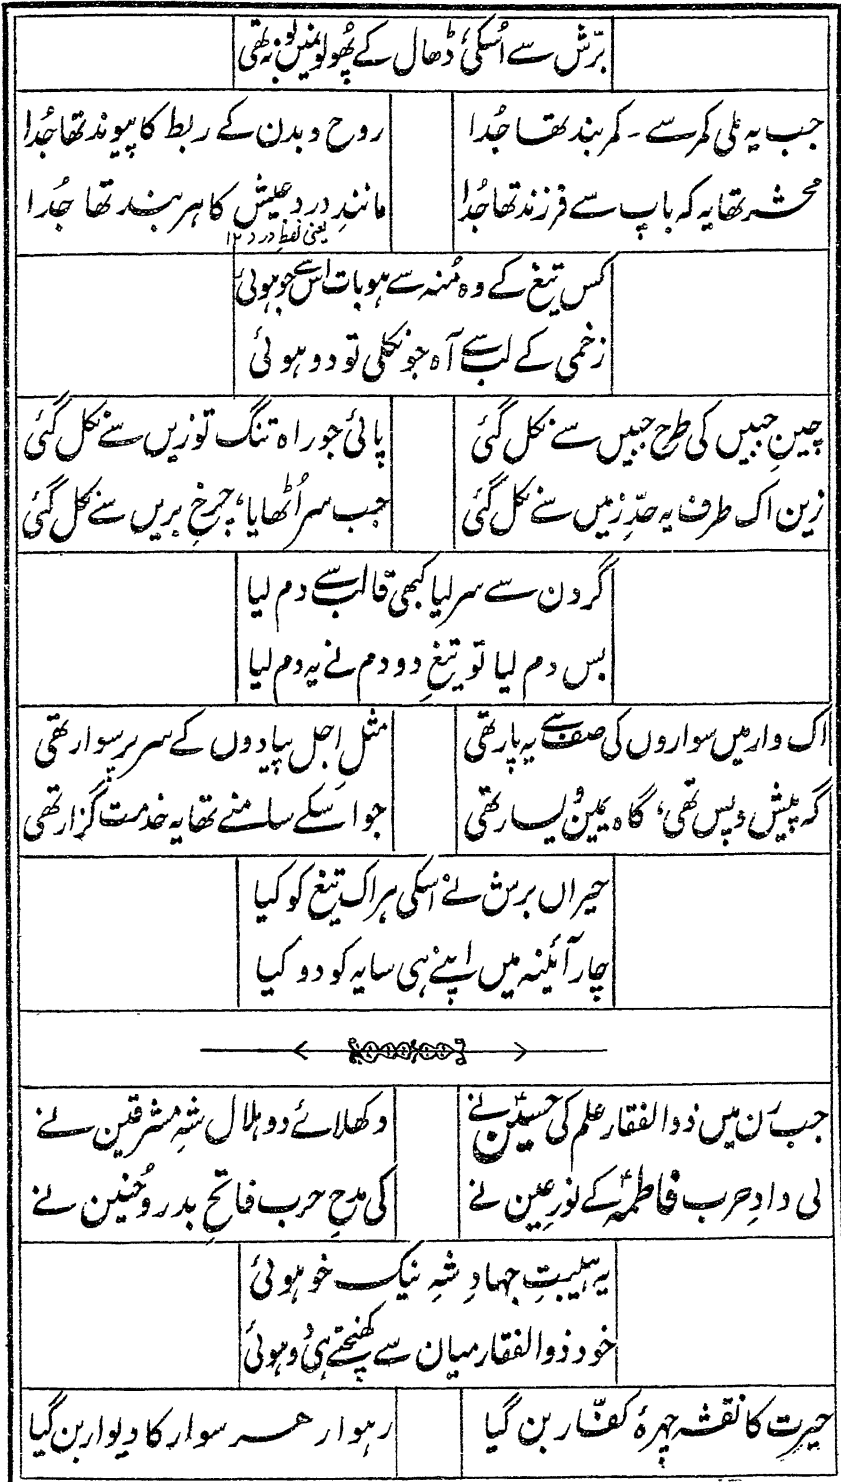 برّش سے اُسکی ڈھال کے پھُولونمیں بو نہ تھی
جب یہ ملی کمر سے ۔ کمر بند تھا جُدا
روح و بدن کے ربط کا پیوند تھا جُدا
محشر تھا یہ کہ باپ سے فرزند تھا جُدا
مانندِ درد عیش کا ہر بند تھا جُدا
یعنی لفظِ درد ۱۲
کس تیغ کے وہ مُنہ سے ہو بات اس سے جو ہوئی
زخمی کے لب سے آہ جو نکلی تو دو ہوئی
چینِ جبیں کی طرح جبیں سے نکل گئی
پائی جو راہ تنگ تو زیں سے نکل گئی
زین اک طرف یہ حدِّ زمیں سے نکل گئی
جب سر اُٹھایا، چرخِ بریں سے نکل گئی
گردن سے سر لیا کبھی قالب سے دم لیا
بس دم لیا تو تیغِ دو دم نے یہ دم لیا
اک وار میں سواروں کی صف سے یہ پار تھی
مثلِ اجل پیادوں کے سر پر سوار تھی
گہ پیش و پس تھی، گاہ یمین و یسار تھی
جو اسکے سامنے تھا یہ خدمت گزار تھی
حیراں برش نے اسکی ہر اک تیغ کو کیا
چار آئینہ میں اپنے ہی سایہ کو دو کیا
جب رن میں ذوالفقار علم کی حسینؑ نے
دکھلائے دو ہلال شہِ مشرقین نے
لی دادِ حرب فاطمہؑ کے نورِ عین نے
کی مدحِ حرب فاتحِ بدر و حُنین نے
یہ ہیبتِ جہادِ شہِ نیک خو ہوئی
خود ذوالفقار میان سے کھنچتے ہی دو ہوئی
حیرت کا نقشہ چہرۂ کفّار بن گیا
رہوار ہر سوار کا دیوار بن گیا